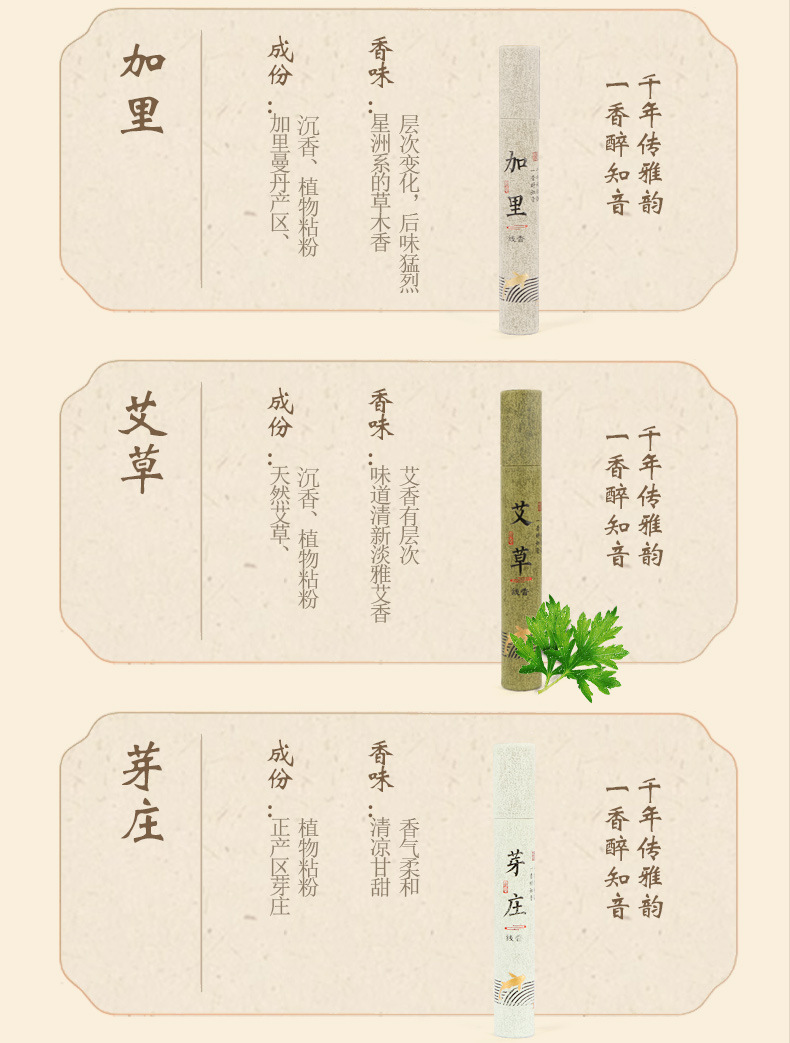 加里
成份：
加里曼丹产区、
沉香、植物粘粉
香味：
星洲系的草木香
层次变化，后味猛烈
加里
线香
一香醉知音
千年传雅韵
艾草
成份：
天然艾草、
沉香、植物粘粉
香味：
味道清新淡雅艾香
艾香有层次
艾草
线香
一香醉知音
千年传雅韵
芽庄
成份：
正产区芽庄
植物粘粉
香味：
清凉甘甜
香气柔和
芽庄
线香
一香醉知音
千年传雅韵